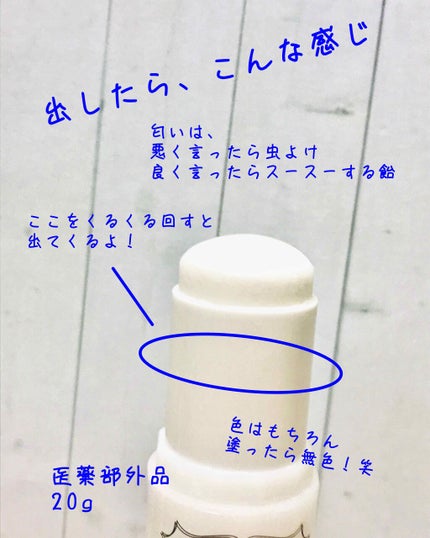 出したら、こんな感じ
匂いは、
悪く言ったら虫よけ
良く言ったらスースーする飴
ここをくるくる回すと
出てくるよ！
色はもちろん
塗ったら無色！笑
医薬部外品
20g